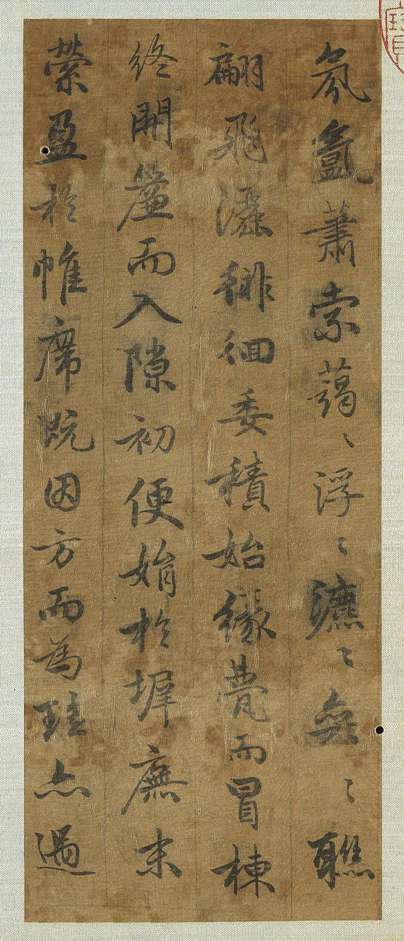 氛氳蕭索藹〻浮〻瀌〻無〻聯
翩飛灑徘徊委積始緣甍而冒棟
終開簾而入隙初便娟於墀廡末
縈盈於帷席既因方而為珪亦過